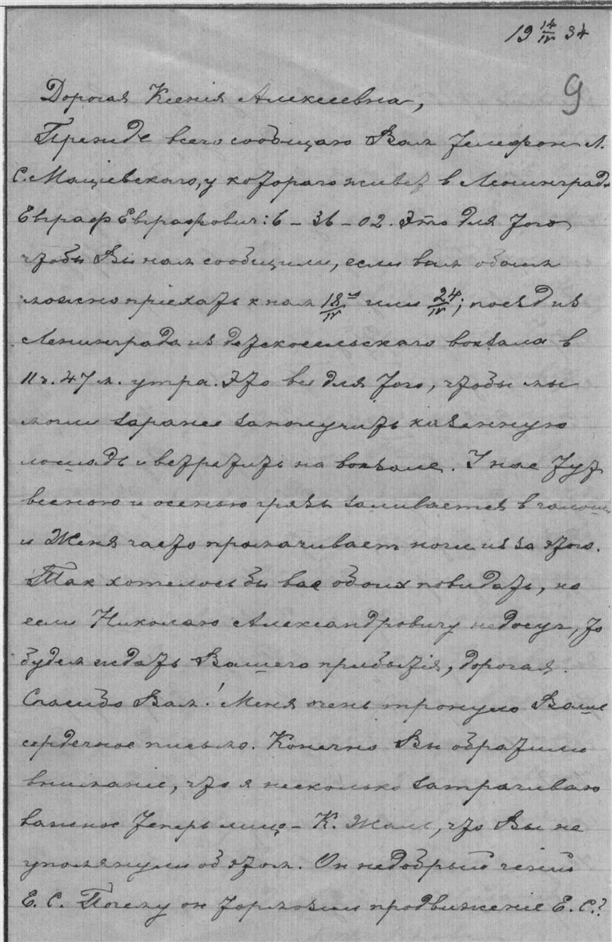 19 14/IV 34
9
Дорогая Ксенія Алексеевна,
Прежде всего сообщаю Вам телефон Л.
С. Мацiевскаго, у котораго живет в Ленинграде
Евграф Евграфович: 6 – 36 – 02. Это для того
чтобы Вы нам сообщили, если вам обоим
можно приехать к нам 18го/IV или 24/IV; поезд из
Ленинграда из детскосельскаго вокзала в
11 ч. 47 м. утра. Это все для того, чтобы мы
могли заранее заполучить казенную
лошадь и встретить на вокзале. У нас тут
весною и осенью грязь заливается в галоши
и Женя часто промачивает ноги из за этого.
Так хотелось бы вас обоих повидать, но
если Николаю Александровичу недосуг, то
будем ждать Вашего прибытія, дорогая.
Спасибо Вам! Меня очень тронуло Ваше
сердечное письмо. Конечно Вы обратили
вниманіе, что я несколько затрагиваю
важное теперь лицо – К. Жаль, что Вы не
упомянули об этом. Он недобрый гений
Е. С. Почему он тормозил продвиженіе Е. С.?